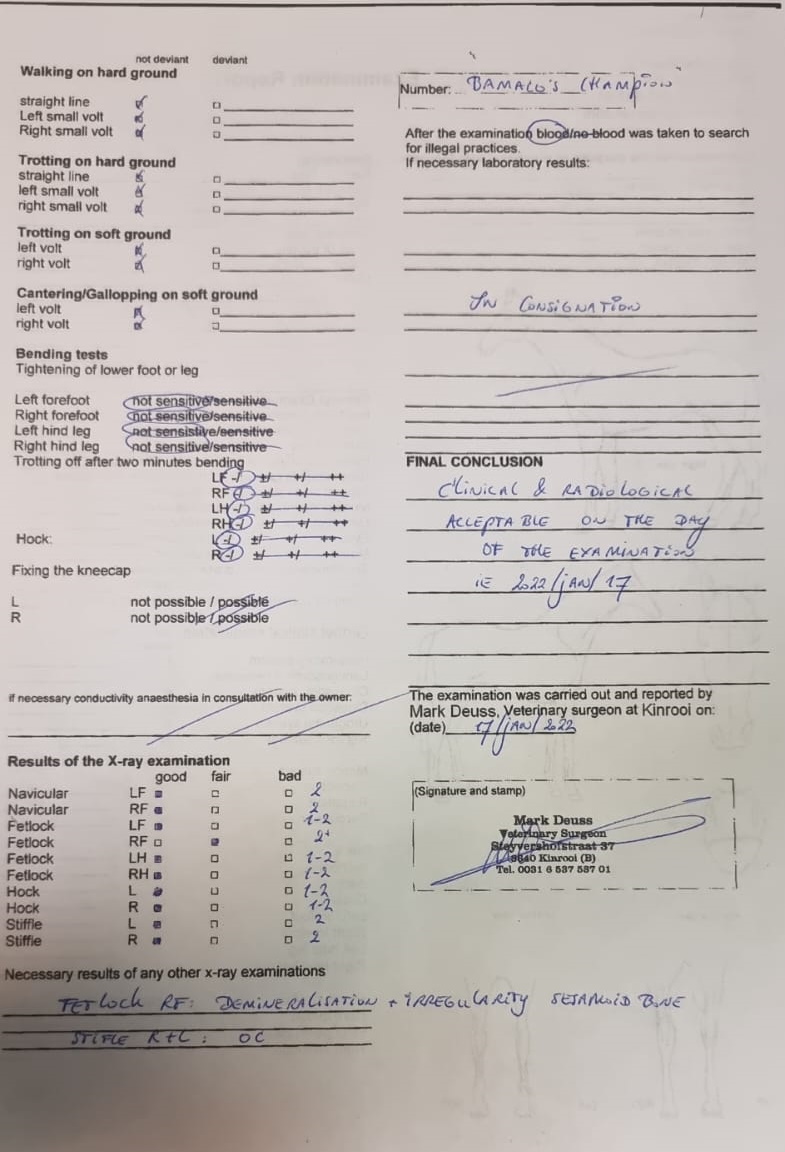 not deviant deviant
Walking on hard ground
straight line
Left small volt
Right small volt
Trotting on hard ground
straight line
left small volt
right small volt
Trotting on soft ground
left volt
right volt
Cantering/Gallopping on soft ground
left volt
right volt
Bending tests
Tightening of lower foot or leg
Left forefoot not sensitive/sensitive
Right forefoot not sensitive/sensitive
Left hind leg not sensistive/sensitive
Right hind leg not sensitive/sensitive
Trotting off after two minutes bending
LF -/ ±/ +/ ++
RF -/ ±/ +/ ++
LH -/ ±/ +/ ++
RH -/ ±/ +/ ++
Hock: L -/ ±/ +/ ++
R -/ ±/ +/ ++
Fixing the kneecap
L not possible / possible
R not possible / possible
if necessary conductivity anaesthesia in consultation with the owner:
Results of the X-ray examination
good fair bad
Navicular LF 2
Navicular RF 2
Fetlock LF 1-2
Fetlock RF 2+
Fetlock LH 1-2
Fetlock RH 1-2
Hock L 1-2
Hock R 1-2
Stiffle L 2
Stiffle R 2
Necessary results of any other x-ray examinations
FETLOCK RF: DEMINERALISATION + IRREGULARITY SESAMOID BONE
STIFLE R+L: OC
Number: BAMACO'S CHAMPION
After the examination blood/no blood was taken to search
for illegal practices.
If necessary laboratory results:
IN CONSIGNATION
FINAL CONCLUSION
CLINICAL & RADIOLOGICAL
ACCEPTABLE ON THE DAY
OF THE EXAMINATION
iE 2022/JAN/17
The examination was carried out and reported by
Mark Deuss, Veterinary surgeon at Kinrooi on:
(date) 17/JAN/2022
(Signature and stamp)
Mark Deuss
Veterinary Surgeon
Steyvershofstraat 37
3640 Kinrooi (B)
Tel. 0031 6 537 587 01